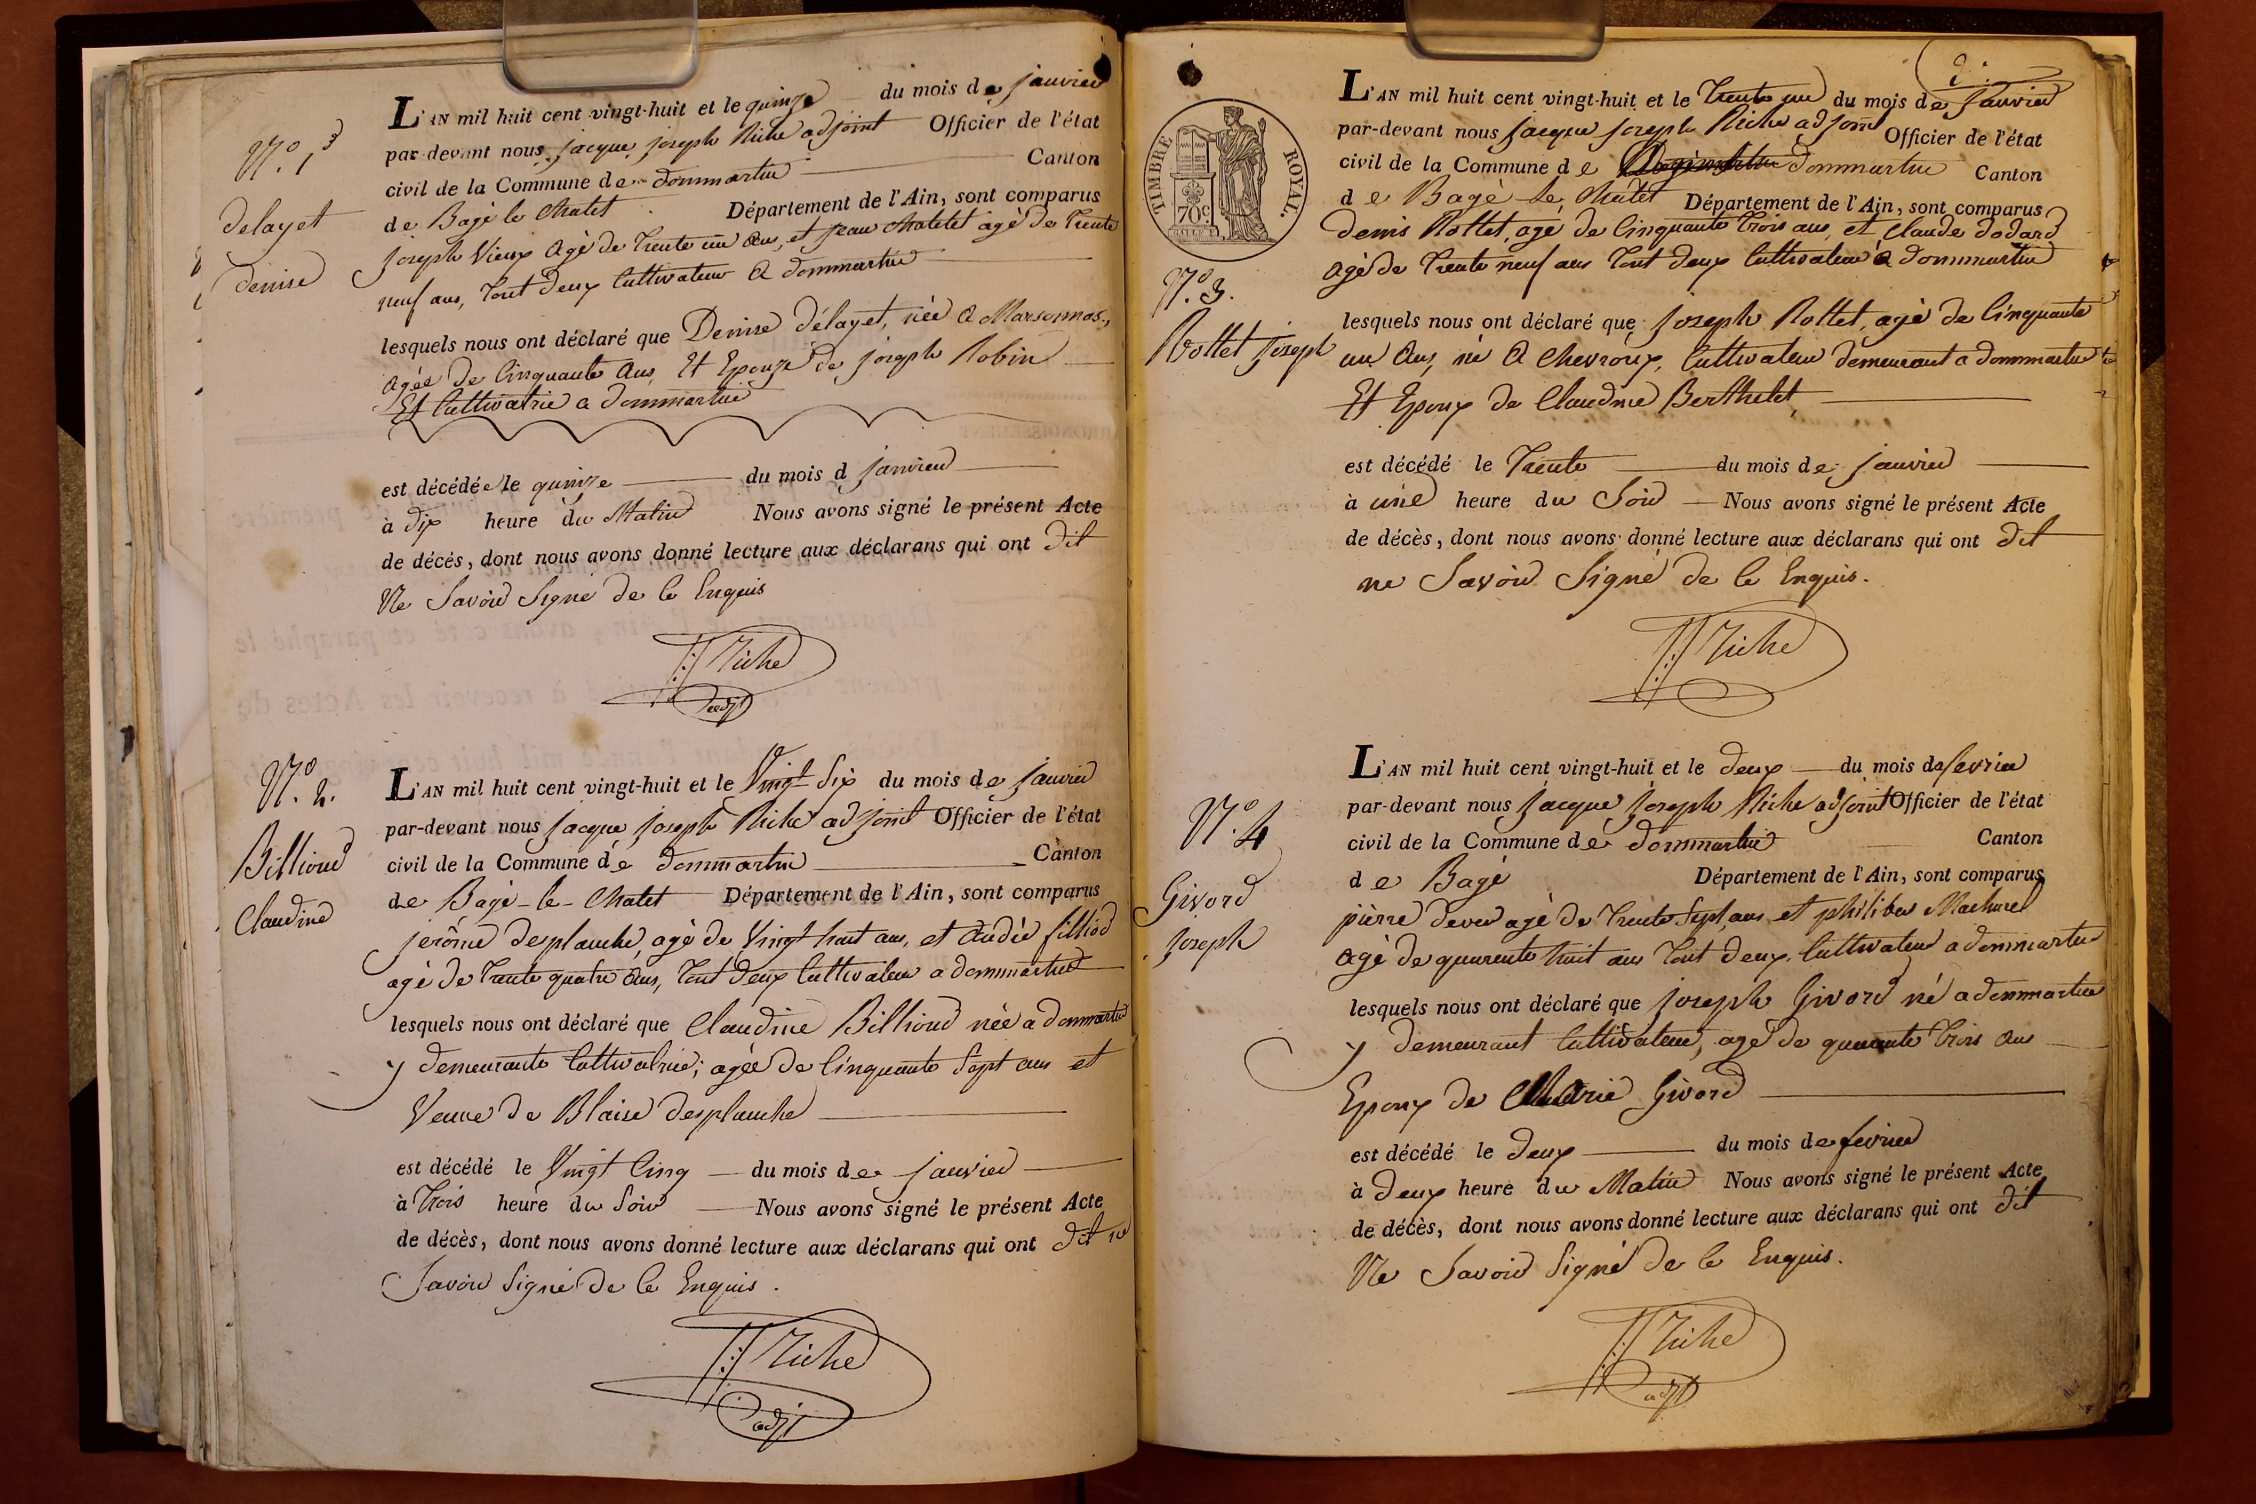 N.º 1
delayet
denise
L'AN mil huit cent vingt-huit et le quinze du mois de janvier
par-devant nous jacque joseph Riche adjoint Officier de l'état
civil de la Commune de dommartin Canton
de Bagé le Chatel Département de l'Ain, sont comparus
joseph Vieux agé de trente un ans, et jean Chatelet agé de trente
neuf ans, tout deux Cultivateur a dommartin
lesquels nous ont déclaré que Denise délayet, née a Marsonnas,
agée de Cinquante ans, Et Epouze de joseph Robin
Et Cultivatrice a dommartin
est décédée le quinze du mois d janvier
à dix heure du Matin Nous avons signé le présent Acte
de décès, dont nous avons donné lecture aux déclarans qui ont dit
Ne Savoir Signé de ce Enquis
JJ Riche
adjt
N.º 2.
Billioud
Claudine
L'AN mil huit cent vingt-huit et le Vingt Six du mois de janvier
par-devant nous jacque joseph Riche adjoint Officier de l'état
civil de la Commune de dommartin Canton
de Bagé-le-Chatel Département de l'Ain, sont comparus
jerôme desplanche agé de Vingt huit ans, et filliod
agé de trente quatre ans, tout deux Cultivateur a dommartin
lesquels nous ont déclaré que Claudine Billioud née a dommartin
y demeurante Cultivatrice; agée de Cinquante Sept ans et
Veuve de Blaise desplanche
est décédé le Vingt Cinq du mois de janvier
à trois heure du Soir Nous avons signé le présent Acte
de décès, dont nous avons donné lecture aux déclarans qui ont dit ne
Savoir Signé de ce Enquis.
JJ Riche
adjt
TIMBRE ROYAL.
70c
L'AN mil huit cent vingt-huit et le trente un du mois de janvier
par-devant nous jacque joseph Riche adjoint Officier de l'état
civil de la Commune de dommartin Canton
de Bagé le Chatel Département de l'Ain, sont comparus
denis Rottet, agé de Cinquante trois ans, et Claude dodard
agé de trente neuf ans tout deux Cultivateur a dommartin
N.º 3.
Rottet joseph
lesquels nous ont déclaré que joseph Rottet, agé de Cinquante
un ans, né a Chevroux, Cultivateur demeurant a dommartin
Et Epoux de Claudine Berthelet,
est décédé le trente du mois de janvier
à une heure du Soir Nous avons signé le présent Acte
de décès, dont nous avons donné lecture aux déclarans qui ont dit
ne Savoir Signé de ce Enquis.
JJ Riche
N.º 4
Givord
joseph
L'AN mil huit cent vingt-huit et le deux du mois de fevrier
par-devant nous jacque joseph Riche adjoint Officier de l'état
civil de la Commune de dommartin Canton
de Bagé Département de l'Ain, sont comparus
pierre agé de trente Sept ans et
agé de quarente huit ans tout deux Cultivateur a dommartin
lesquels nous ont déclaré que joseph Givord né a dommartin
y demeurant Cultivateur, agé de quarante trois ans
Epoux de Marie Givord
est décédé le deux du mois de fevrier
à deux heure du Matin Nous avons signé le présent Acte
de décès, dont nous avons donné lecture aux déclarans qui ont dit
Ne Savoir Signé de ce Enquis.
JJ Riche
adjt